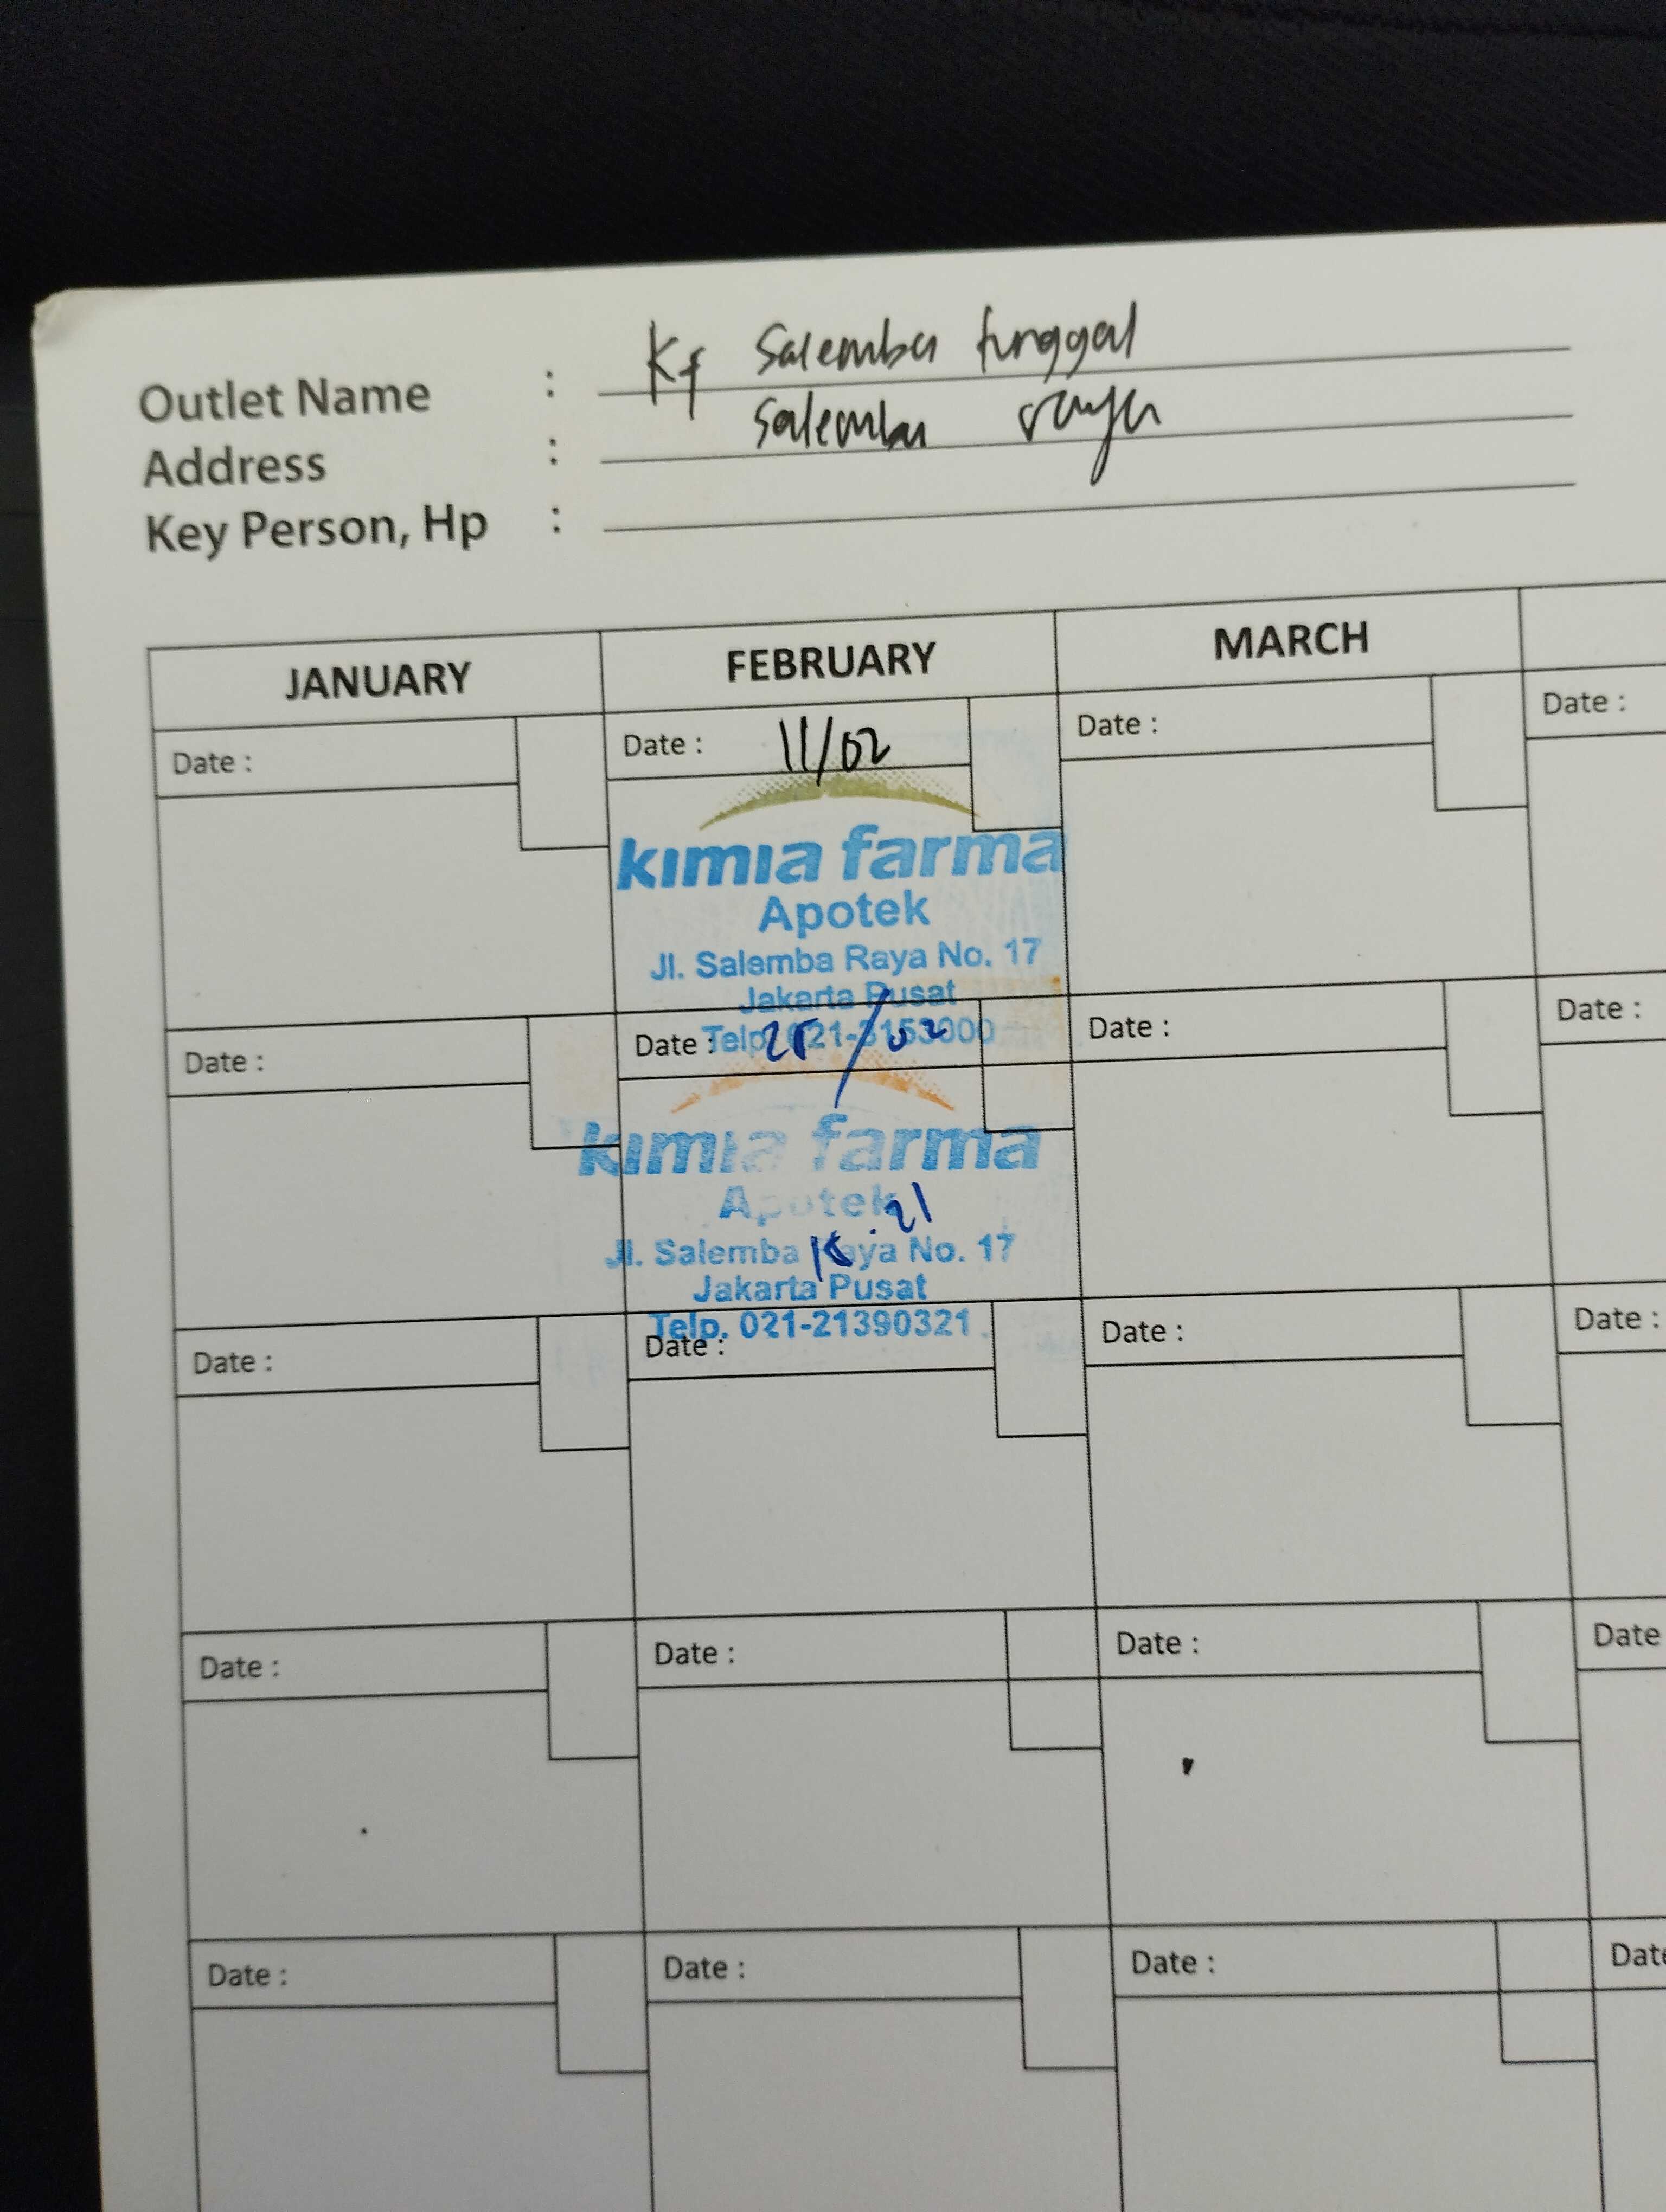 Outlet Name : Kf Salemba tunggal
Address : Salemba raya
Key Person, Hp :
JANUARY FEBRUARY MARCH
Date : Date : 11/02 Date : Date :
kimia farma
Apotek
Jl. Salemba Raya No. 17
Jakarta Pusat
Telp. 021-3153000
Date : Date : 25/02 Date : Date :
kimia farma
Apotek
Jl. Salemba Raya No. 17
Jakarta Pusat
Telp. 021-21390321
Date : Date : Date : Date :
Date : Date : Date : Date
Date : Date : Date : Date